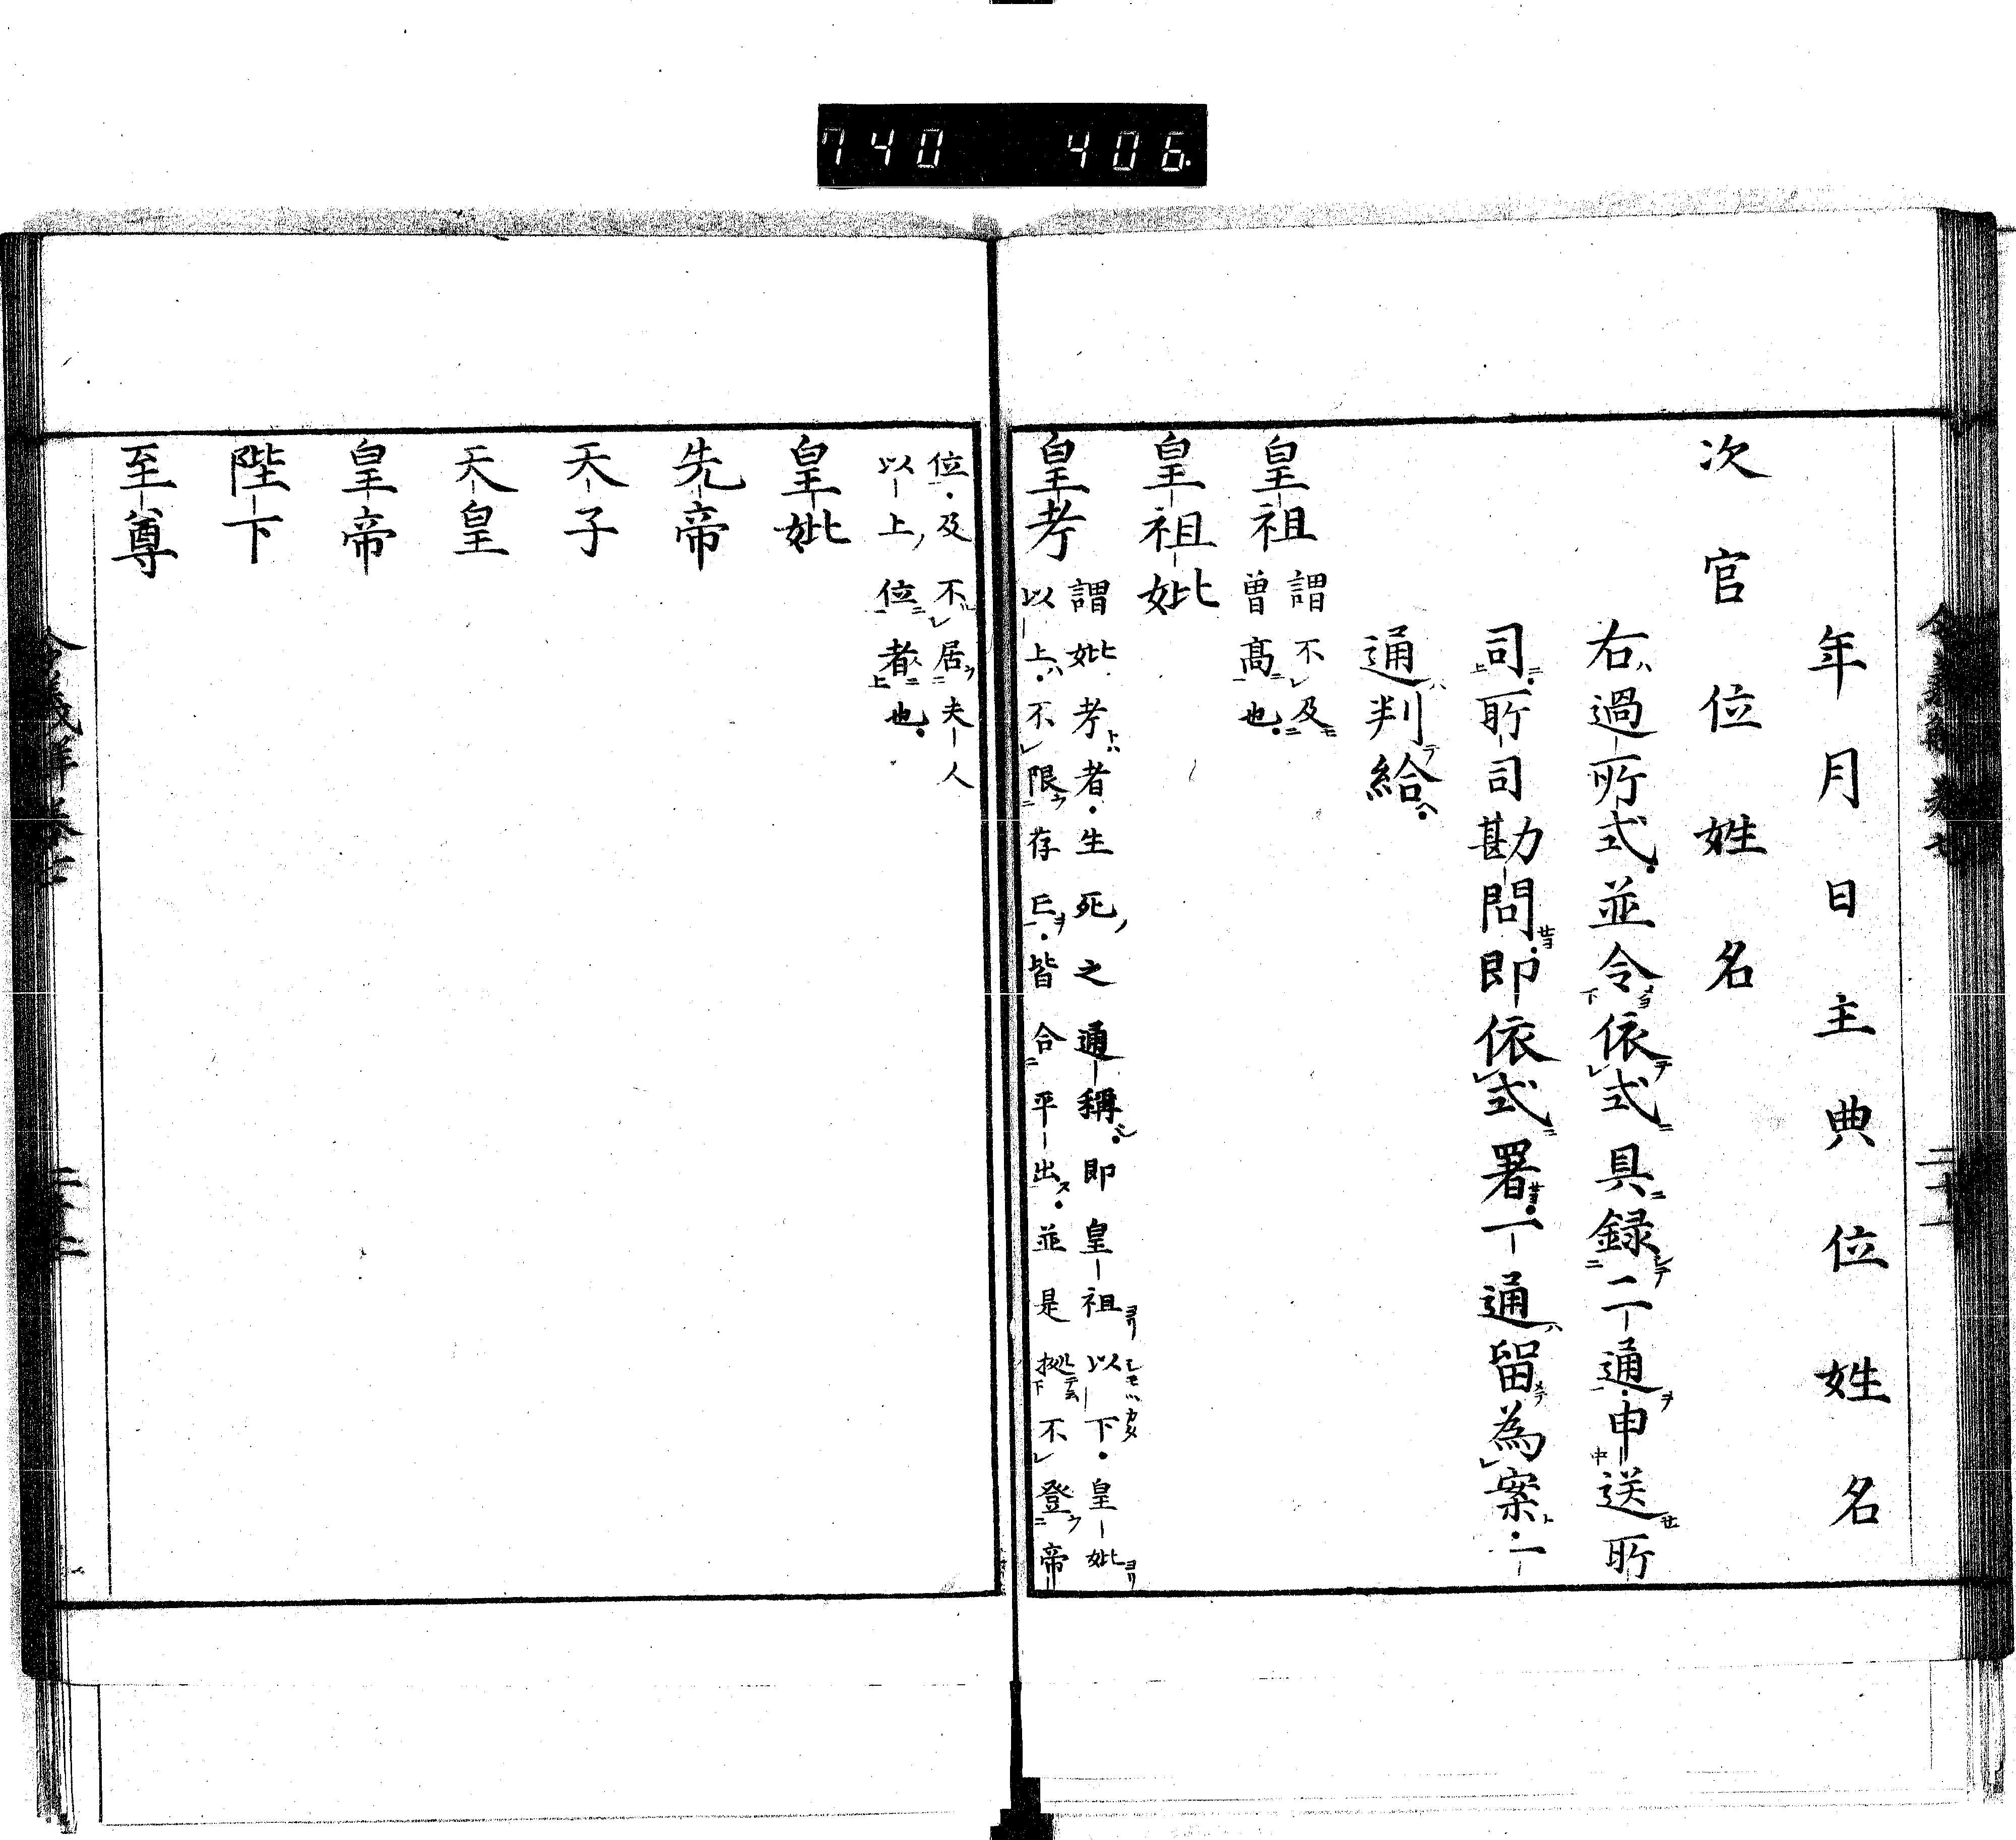 740 406
年月日主典位姓名
次官位姓名
右過所式並令依式具録二通申送所
司所司勘問即依式署一通留為案一
通判給
皇祖
謂不及
曽髙也
皇祖妣
皇考
謂妣考者生死之通稱即皇祖以下皇妣
以上不限存亡皆合平出並是拠不登帝
位及不居夫人
以上位者也
皇妣
先帝
天子
天皇
皇帝
陛下
至尊